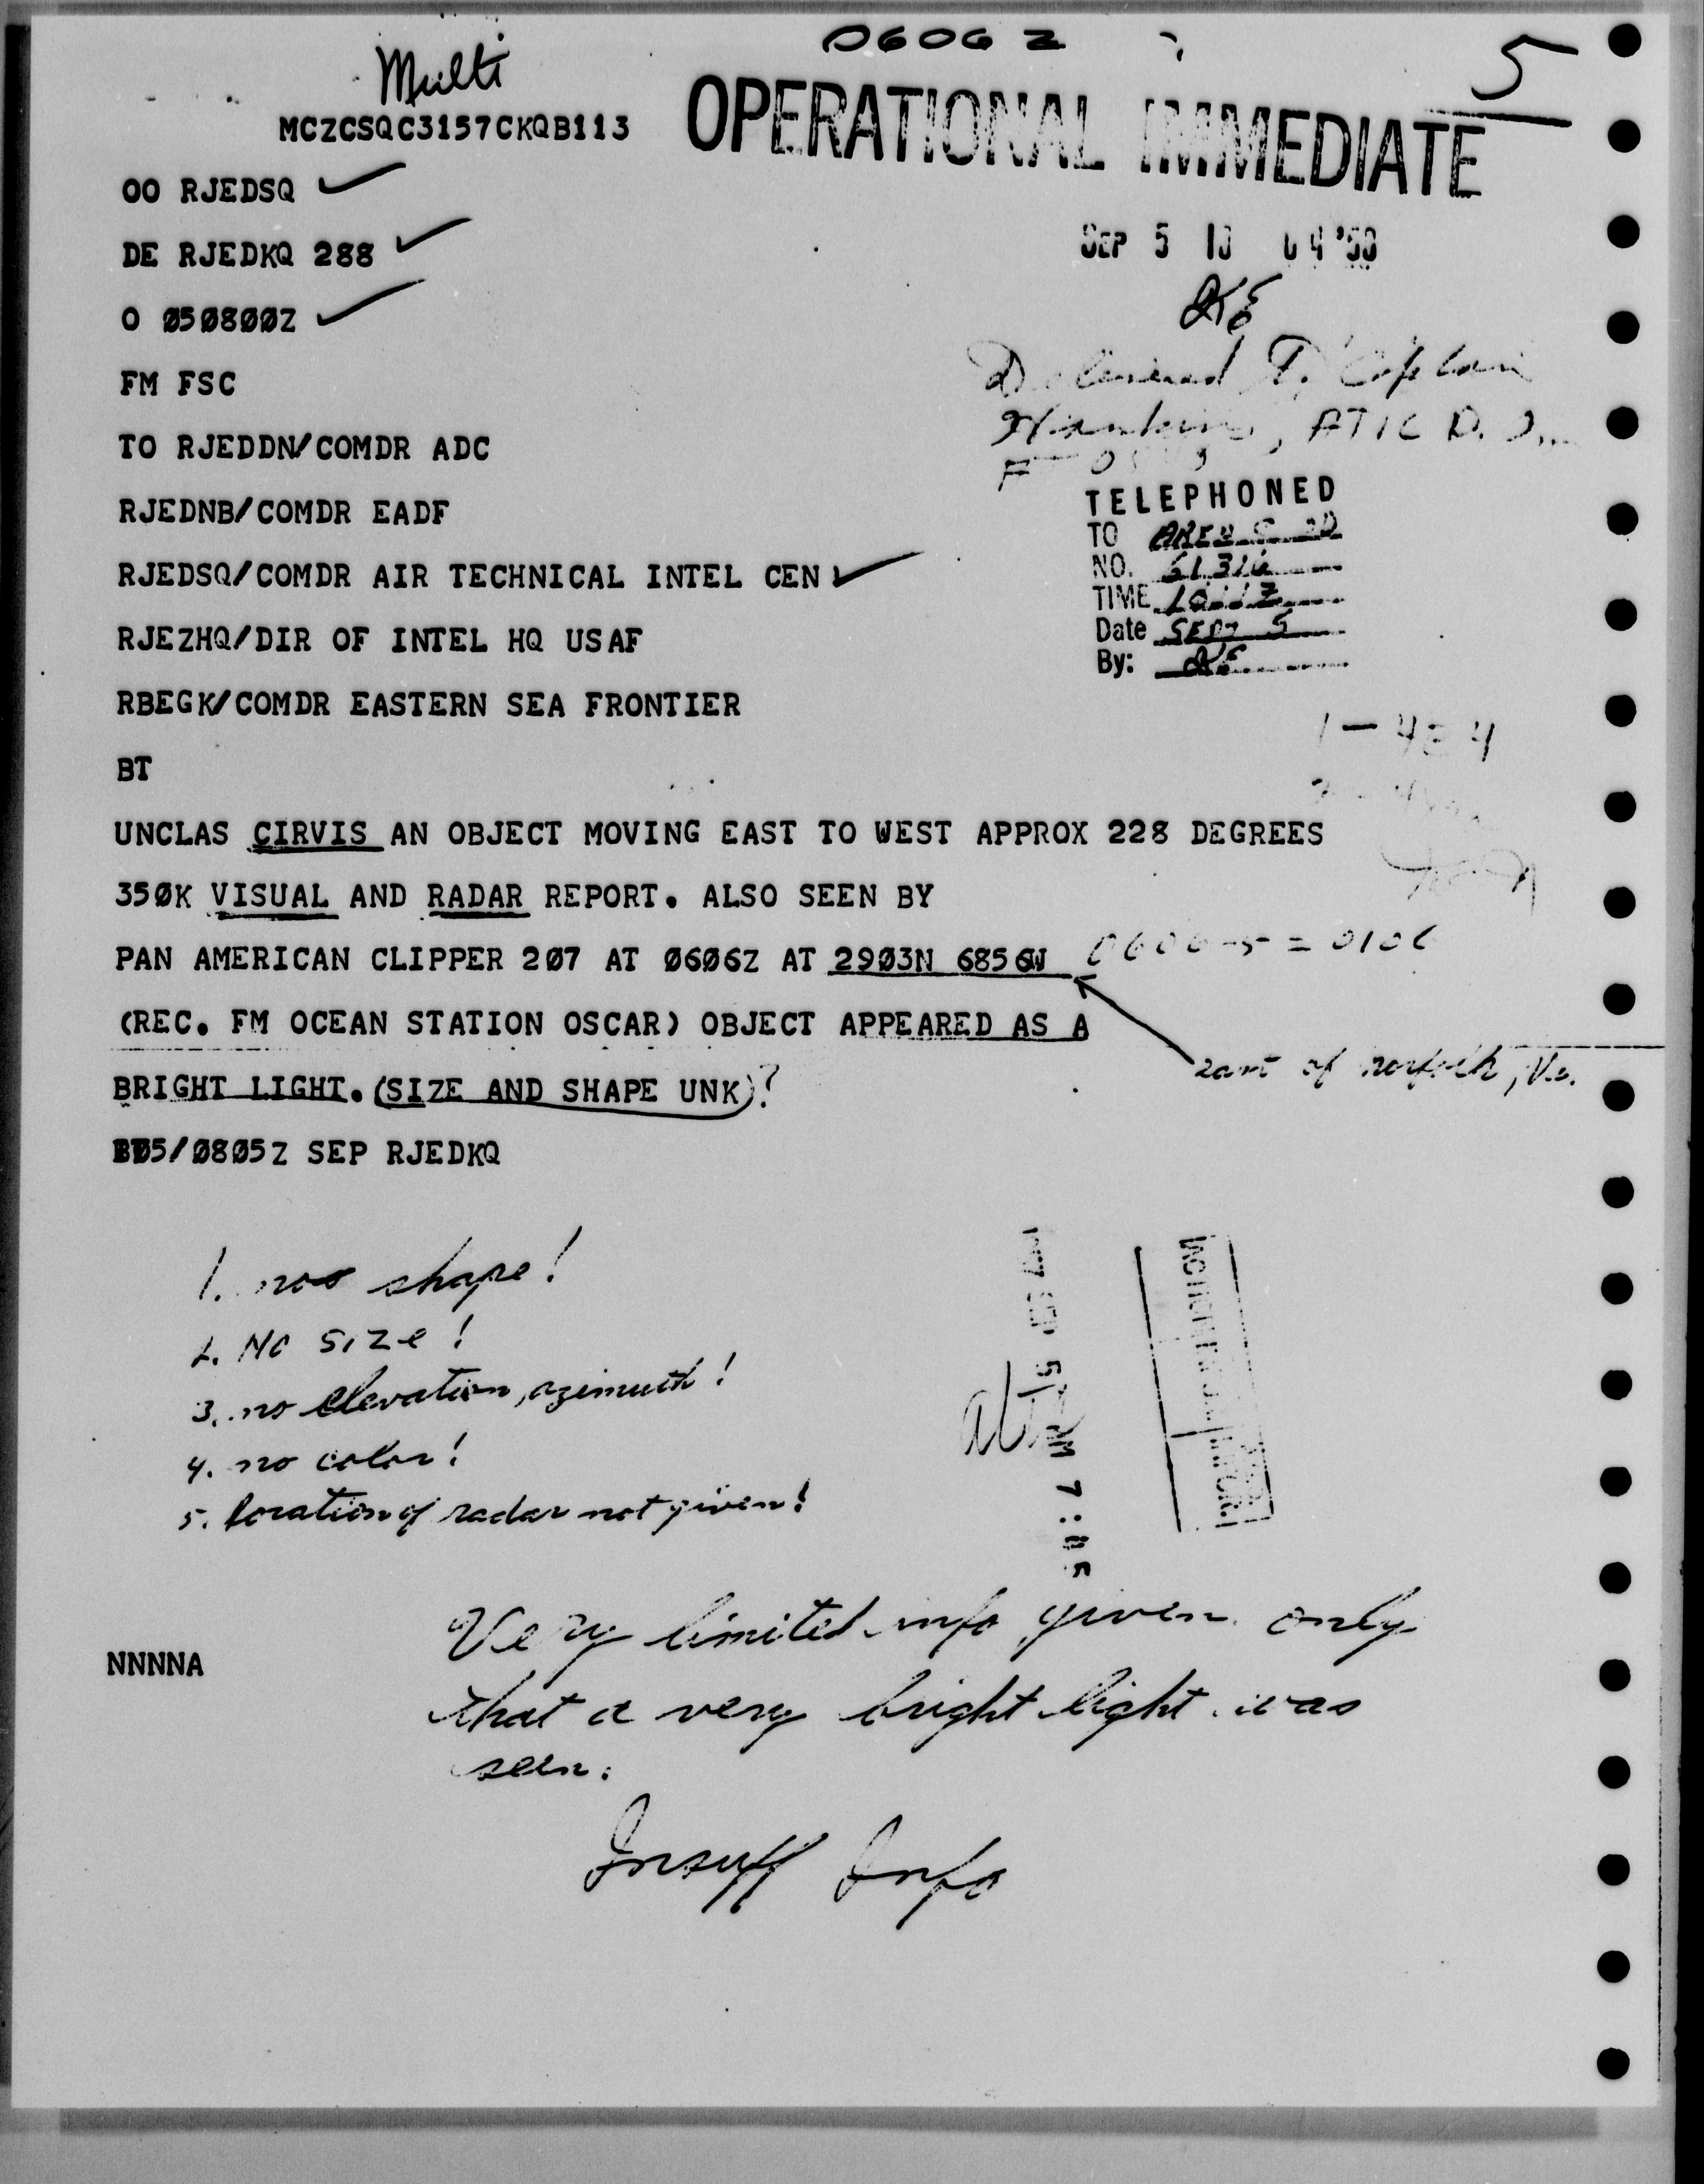 0606 Z
5
Multi
MCZCSQC3157CKQB113
OPERATIONAL IMMEDIATE
OO RJEDSQ
DE RJEDKQ 288
SEP 5 10 04 '58
O Ø5Ø8ØØZ
FM FSC
TO RJEDDN/COMDR ADC
ATIC D.
RJEDNB/COMDR EADF
TELEPHONED
TO
NO.
TIME
Date SEPT 5
By:
RJEDSQ/COMDR AIR TECHNICAL INTEL CEN
RJEZHQ/DIR OF INTEL HQ USAF
RBEGK/COMDR EASTERN SEA FRONTIER
BT
UNCLAS CIRVIS AN OBJECT MOVING EAST TO WEST APPROX 228 DEGREES
35ØK VISUAL AND RADAR REPORT. ALSO SEEN BY
PAN AMERICAN CLIPPER 2Ø7 AT Ø6Ø6Z AT 29Ø3N 6856W
0606-5=0106
(REC. FM OCEAN STATION OSCAR) OBJECT APPEARED AS A
of Norfolk, Va.
BRIGHT LIGHT. (SIZE AND SHAPE UNK)?
Ø5/Ø8Ø5Z SEP RJEDKQ
1. no shape!
2. No size!
3. no elevation, azimuth!
4. no color!
5. location of radar not given!
SEP 5 AM 7:05
Very limited info given only
NNNNA
that a very bright light was
seen.
Insuff Info